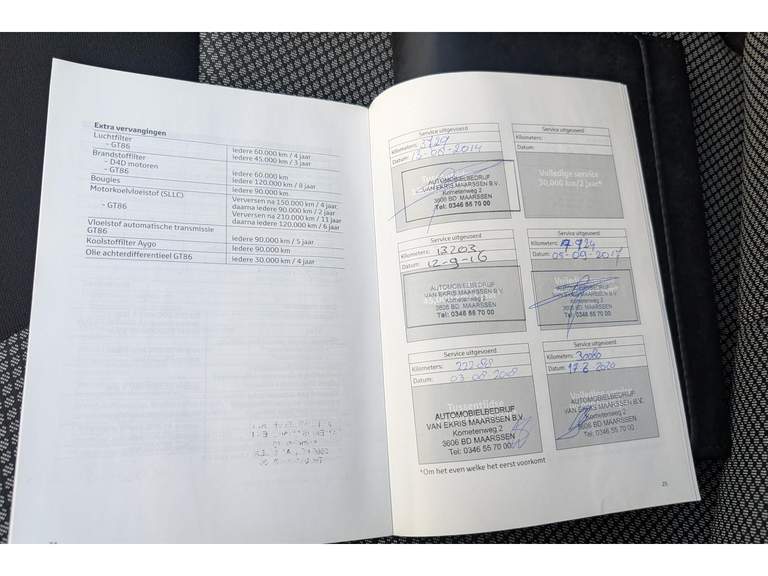 Extra vervangingen
Luchtfilter
Iedere 60.000 km / 4 jaar
- GT86
Iedere 45.000 km / 3 jaar
Brandstoffilter
- D4D motoren
Iedere 60.000 km
- GT86
Iedere 120.000 km / 8 jaar
Bougies
Iedere 90.000 km
Motorkoelvloeistof (SLLC)
Verversen na 150.000 km / 4 jaar,
daarna iedere 90.000 km / 2 jaar
- GT86
Verversen na 210.000 km / 11 jaar
daarna iedere 120.000 km / 6 jaar
Vloeistof automatische transmissie
GT86
Iedere 90.000 km / 5 jaar
Koolstoffilter Aygo
Iedere 90.000 km
Olie achterdifferentieel GT86
Iedere 30.000 km / 4 jaar
Service uitgevoerd
Kilometers: 3729
Datum: 13-08-2014
AUTOMOBIELBEDRIJF
VAN EKRIS MAARSSEN B.V.
Kometenweg 2
3606 BD MAARSSEN
Tel: 0346 55 70 00
Service uitgevoerd
Kilometers:
Datum:
Volledige service
30.000 km/2 jaar*
Service uitgevoerd
Kilometers: 13203
Datum: 12-9-16
AUTOMOBIELBEDRIJF
VAN EKRIS MAARSSEN B.V.
Kometenweg 2
3606 BD MAARSSEN
Tel: 0346 55 70 00
Service uitgevoerd
Kilometers:
Datum: 05-09-2017
AUTOMOBIELBEDRIJF
VAN EKRIS MAARSSEN B.V.
Kometenweg 2
3606 BD MAARSSEN
Tel: 0346 55 70 00
Service uitgevoerd
Kilometers: 22288
Datum: 03 08 2018
Tussentijdse
AUTOMOBIELBEDRIJF
VAN EKRIS MAARSSEN B.V.
Kometenweg 2
3606 BD MAARSSEN
Tel: 0346 55 70 00
Service uitgevoerd
Kilometers: 30080
Datum: 17 8 2020
Volledige service
AUTOMOBIELBEDRIJF
VAN EKRIS MAARSSEN B.V.
Kometenweg 2
3606 BD MAARSSEN
Tel: 0346 55 70 00
*Om het even welke het eerst voorkomt
25